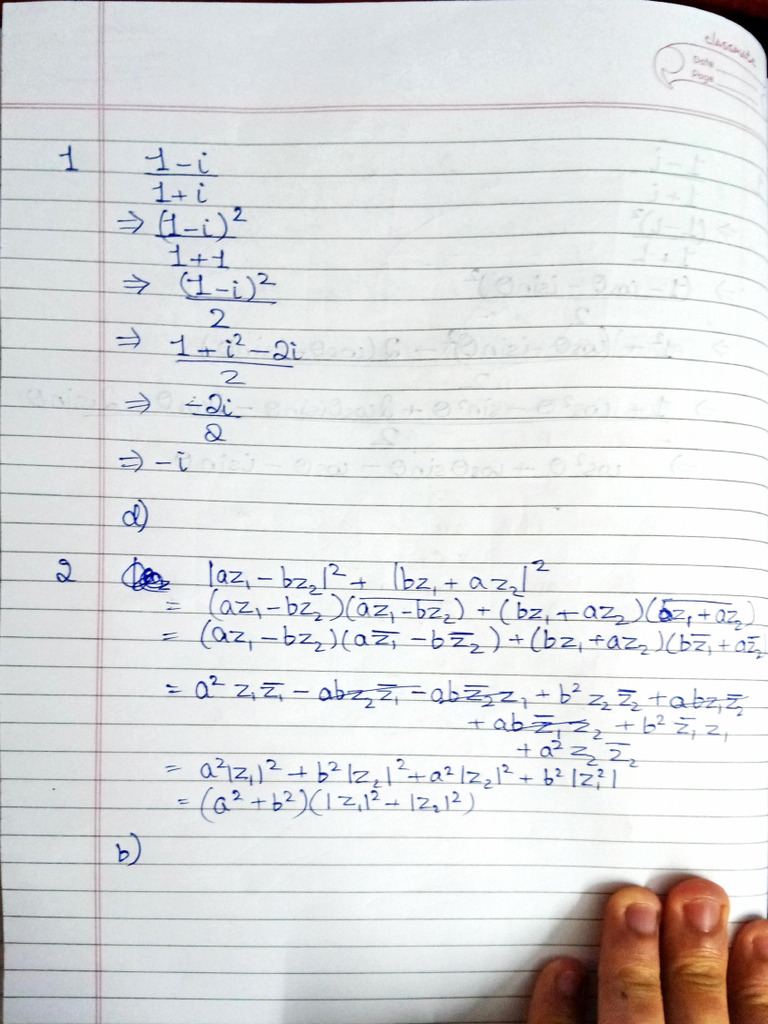 classmate
Date
Page
1 (1-i)/(1+i)
⇒ (1-i)²/(1+1)
⇒ (1-i)²/2
⇒ (1+i²-2i)/2
⇒ -2i/2
⇒ -i
d)
2 |az₁ - bz₂|² + |bz₁ + az₂|²
= (az₁ - bz₂)(a̅z̅₁̅ ̅-̅ ̅b̅z̅₂̅) + (bz₁ + az₂)(b̅z̅₁̅ ̅+̅ ̅a̅z̅₂̅)
= (az₁ - bz₂)(az̅₁ - bz̅₂) + (bz₁ + az₂)(bz̅₁ + az̅₂)
= a² z₁z̅₁ - abz₂z̅₁ - abz̅₂z₁ + b² z₂z̅₂ + abz₁z̅₂
+ abz̅₁z₂ + b² z̅₁z₁
+ a² z₂z̅₂
= a²|z₁|² + b²|z₂|² + a²|z₂|² + b²|z₁²|
= (a² + b²)(|z₁|² + |z₂|²)
b)